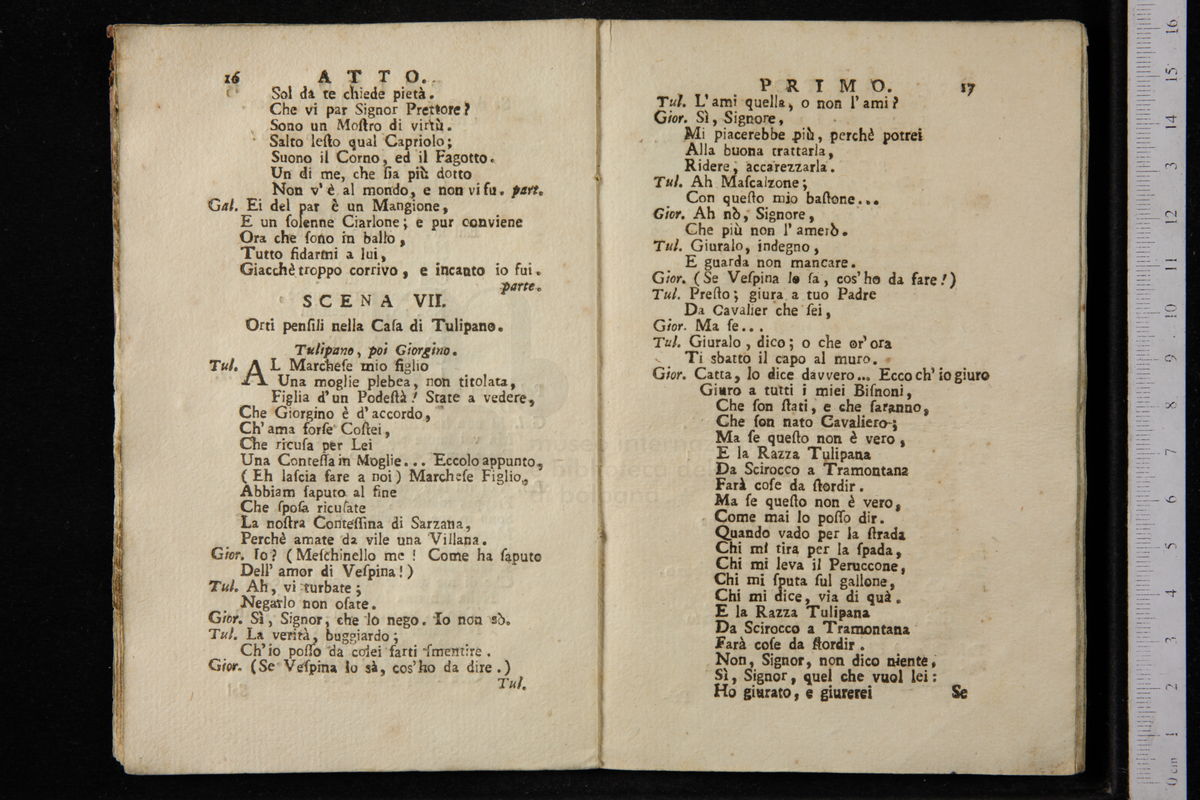 16 ATTO.
Sol da te chiede pietà.
Che vi par Signor Prettore?
Sono un Moſtro di virtù.
Salto leſto qual Capriolo;
Suono il Corno, ed il Fagotto.
Un di me, che ſia più dotto
Non v'è al mondo, e non vi fu. part.
Gal. Ei del par è un Mangione,
E un ſolenne Ciarlone; e pur conviene
Ora che ſono in ballo,
Tutto fidarmi a lui,
Giacchè troppo corrivo, e incanto io fui.
parte.
SCENA VII.
Orti penſili nella Caſa di Tulipano.
Tulipano, poi Giorgino.
Tul. AL Marcheſe mio figlio
Una moglie plebea, non titolata,
Figlia d'un Podeſtà! State a vedere,
Che Giorgino è d'accordo,
Ch'ama forſe Coſtei,
Che ricuſa per Lei
Una Conteſſa in Moglie... Eccolo appunto,
(Eh laſcia fare a noi) Marcheſe Figlio,
Abbiam ſaputo al fine
Che ſpoſa ricuſate
La noſtra Conteſſina di Sarzana,
Perchè amate da vile una Villana.
Gior. Io? (Meſchinello me! Come ha ſaputo
Dell' amor di Veſpina!)
Tul. Ah, vi turbate;
Negarlo non oſate.
Gior. Sì, Signor, che lo nego. Io non sò.
Tul. La verità, buggiardo;
Ch'io poſſo da colei farti ſmentire.
Gior. (Se Veſpina lo sà, cos'ho da dire.)
Tul.
PRIMO. 17
Tul. L'ami quella, o non l'ami?
Gior. Sì, Signore,
Mi piacerebbe più, perchè potrei
Alla buona trattarla,
Ridere, accarezzarla.
Tul. Ah Maſcalzone;
Con queſto mio baſtone...
Gior. Ah nò, Signore,
Che più non l'amerò.
Tul. Giuralo, indegno,
E guarda non mancare.
Gior. (Se Veſpina lo ſa, cos'ho da fare!)
Tul. Preſto; giura a tuo Padre
Da Cavalier che ſei,
Gior. Ma ſe...
Tul. Giuralo, dico; o che or'ora
Ti sbatto il capo al muro.
Gior. Catta, lo dice davvero... Ecco ch'io giuro
Giuro a tutti i miei Biſnoni,
Che ſon ſtati, e che ſaranno,
Che ſon nato Cavaliero;
Ma ſe queſto non è vero,
E la Razza Tulipana
Da Scirocco a Tramontana
Farà coſe da ſtordir.
Ma ſe queſto non è vero,
Come mai lo poſſo dir.
Quando vado per la ſtrada
Chi mi tira per la ſpada,
Chi mi leva il Peruccone,
Chi mi ſputa ſul gallone,
Chi mi dice, via di quà.
E la Razza Tulipana
Da Scirocco a Tramontana
Farà coſe da ſtordir.
Non, Signor, non dico niente,
Sì, Signor, quel che vuol lei:
Ho giurato, e giurerei
Se
0 cm 1 2 3 4 5 6 7 8 9 10 11 12 13 14 15 16